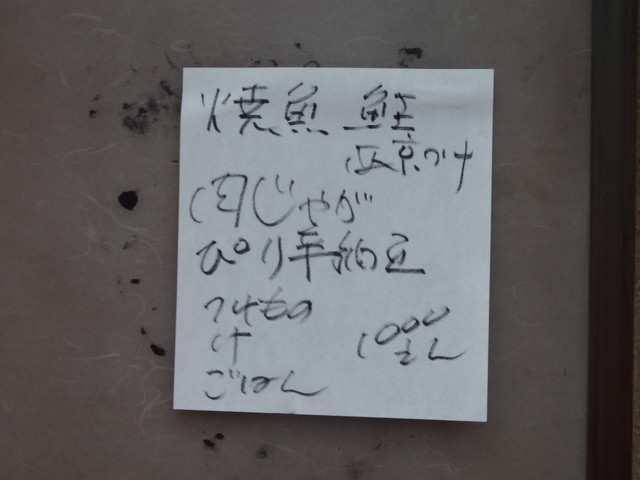 焼魚 鮭
西京づけ
肉じゃが
ぴり辛納豆
つけもの
汁
1000
えん
ごはん